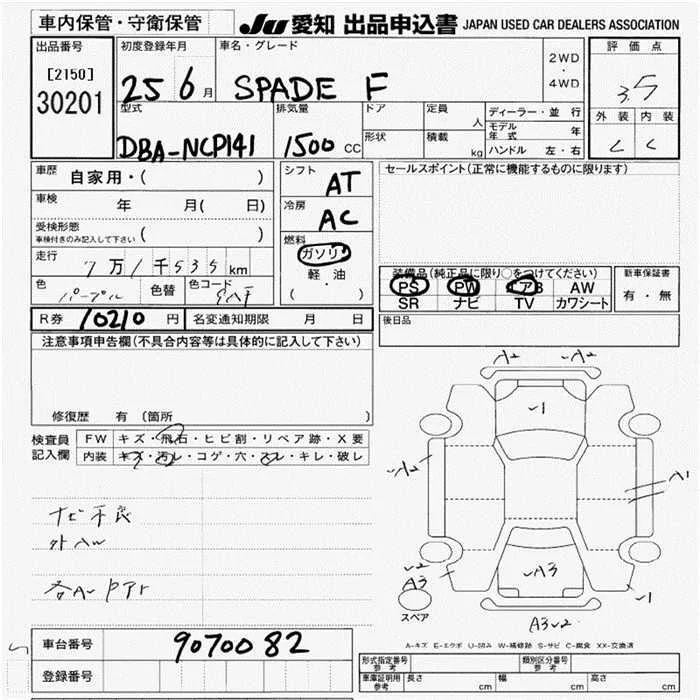 車内保管・守衛保管
JU 愛知 出品申込書 JAPAN USED CAR DEALERS ASSOCIATION
出品番号
[2150]
30201
初度登録年月
25 6 月
車名・グレード
SPADE F
2WD
・
4WD
評価点
3.5
外装 内装
型式
DBA-NCP141
排気量
1500 CC
ドア
形状
定員 人
積載 kg
ディーラー・並行
モデル年式 年
ハンドル 左・右
車歴 自家用・( )
車検 年 月( 日)
受検形態
車検付きのみ記入して下さい ( )
走行 7万1千535 km
色 パープル 色替 色コード
シフト AT
冷房 AC
燃料
ガソリン
軽・油
( )
セールスポイント(正常に機能するものに限ります)
装備品(純正品に限り○をつけてください)
PS PW エアB AW
SR ナビ TV カワシート
新車保証書
有・無
R券 10210 円 名変通知期限 月 日
後日品
注意事項申告欄(不具合内容等は具体的に記入して下さい)
修復歴 有 (箇所 )
検査員
記入欄
FW キズ・飛石・ヒビ割・リペア跡・X要
内装 キズ・汚レ・コゲ・穴・スレ・キレ・破レ
ナビ不良
外AW
A2 A2
1
A2
A1
2
A3
A3
1
スペア
A3 2
A-キズ E-エクボ U-凹み W-補修跡 S-サビ C-腐食 XX-交換済
車台番号 9070082
登録番号
形式指定番号
参考
類別区分番号
参考
車庫証明用
参考
長さ cm 幅 cm 高さ cm